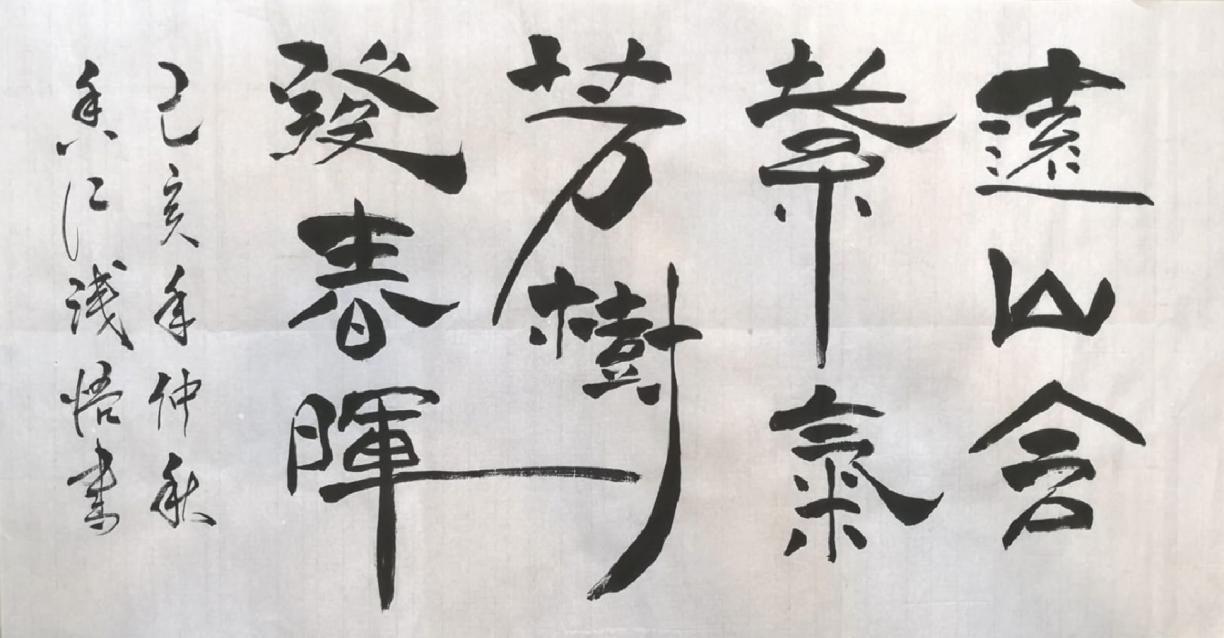 遠山含
紫氣
芳樹
發春暉
己亥年仲秋
香江浅悟書